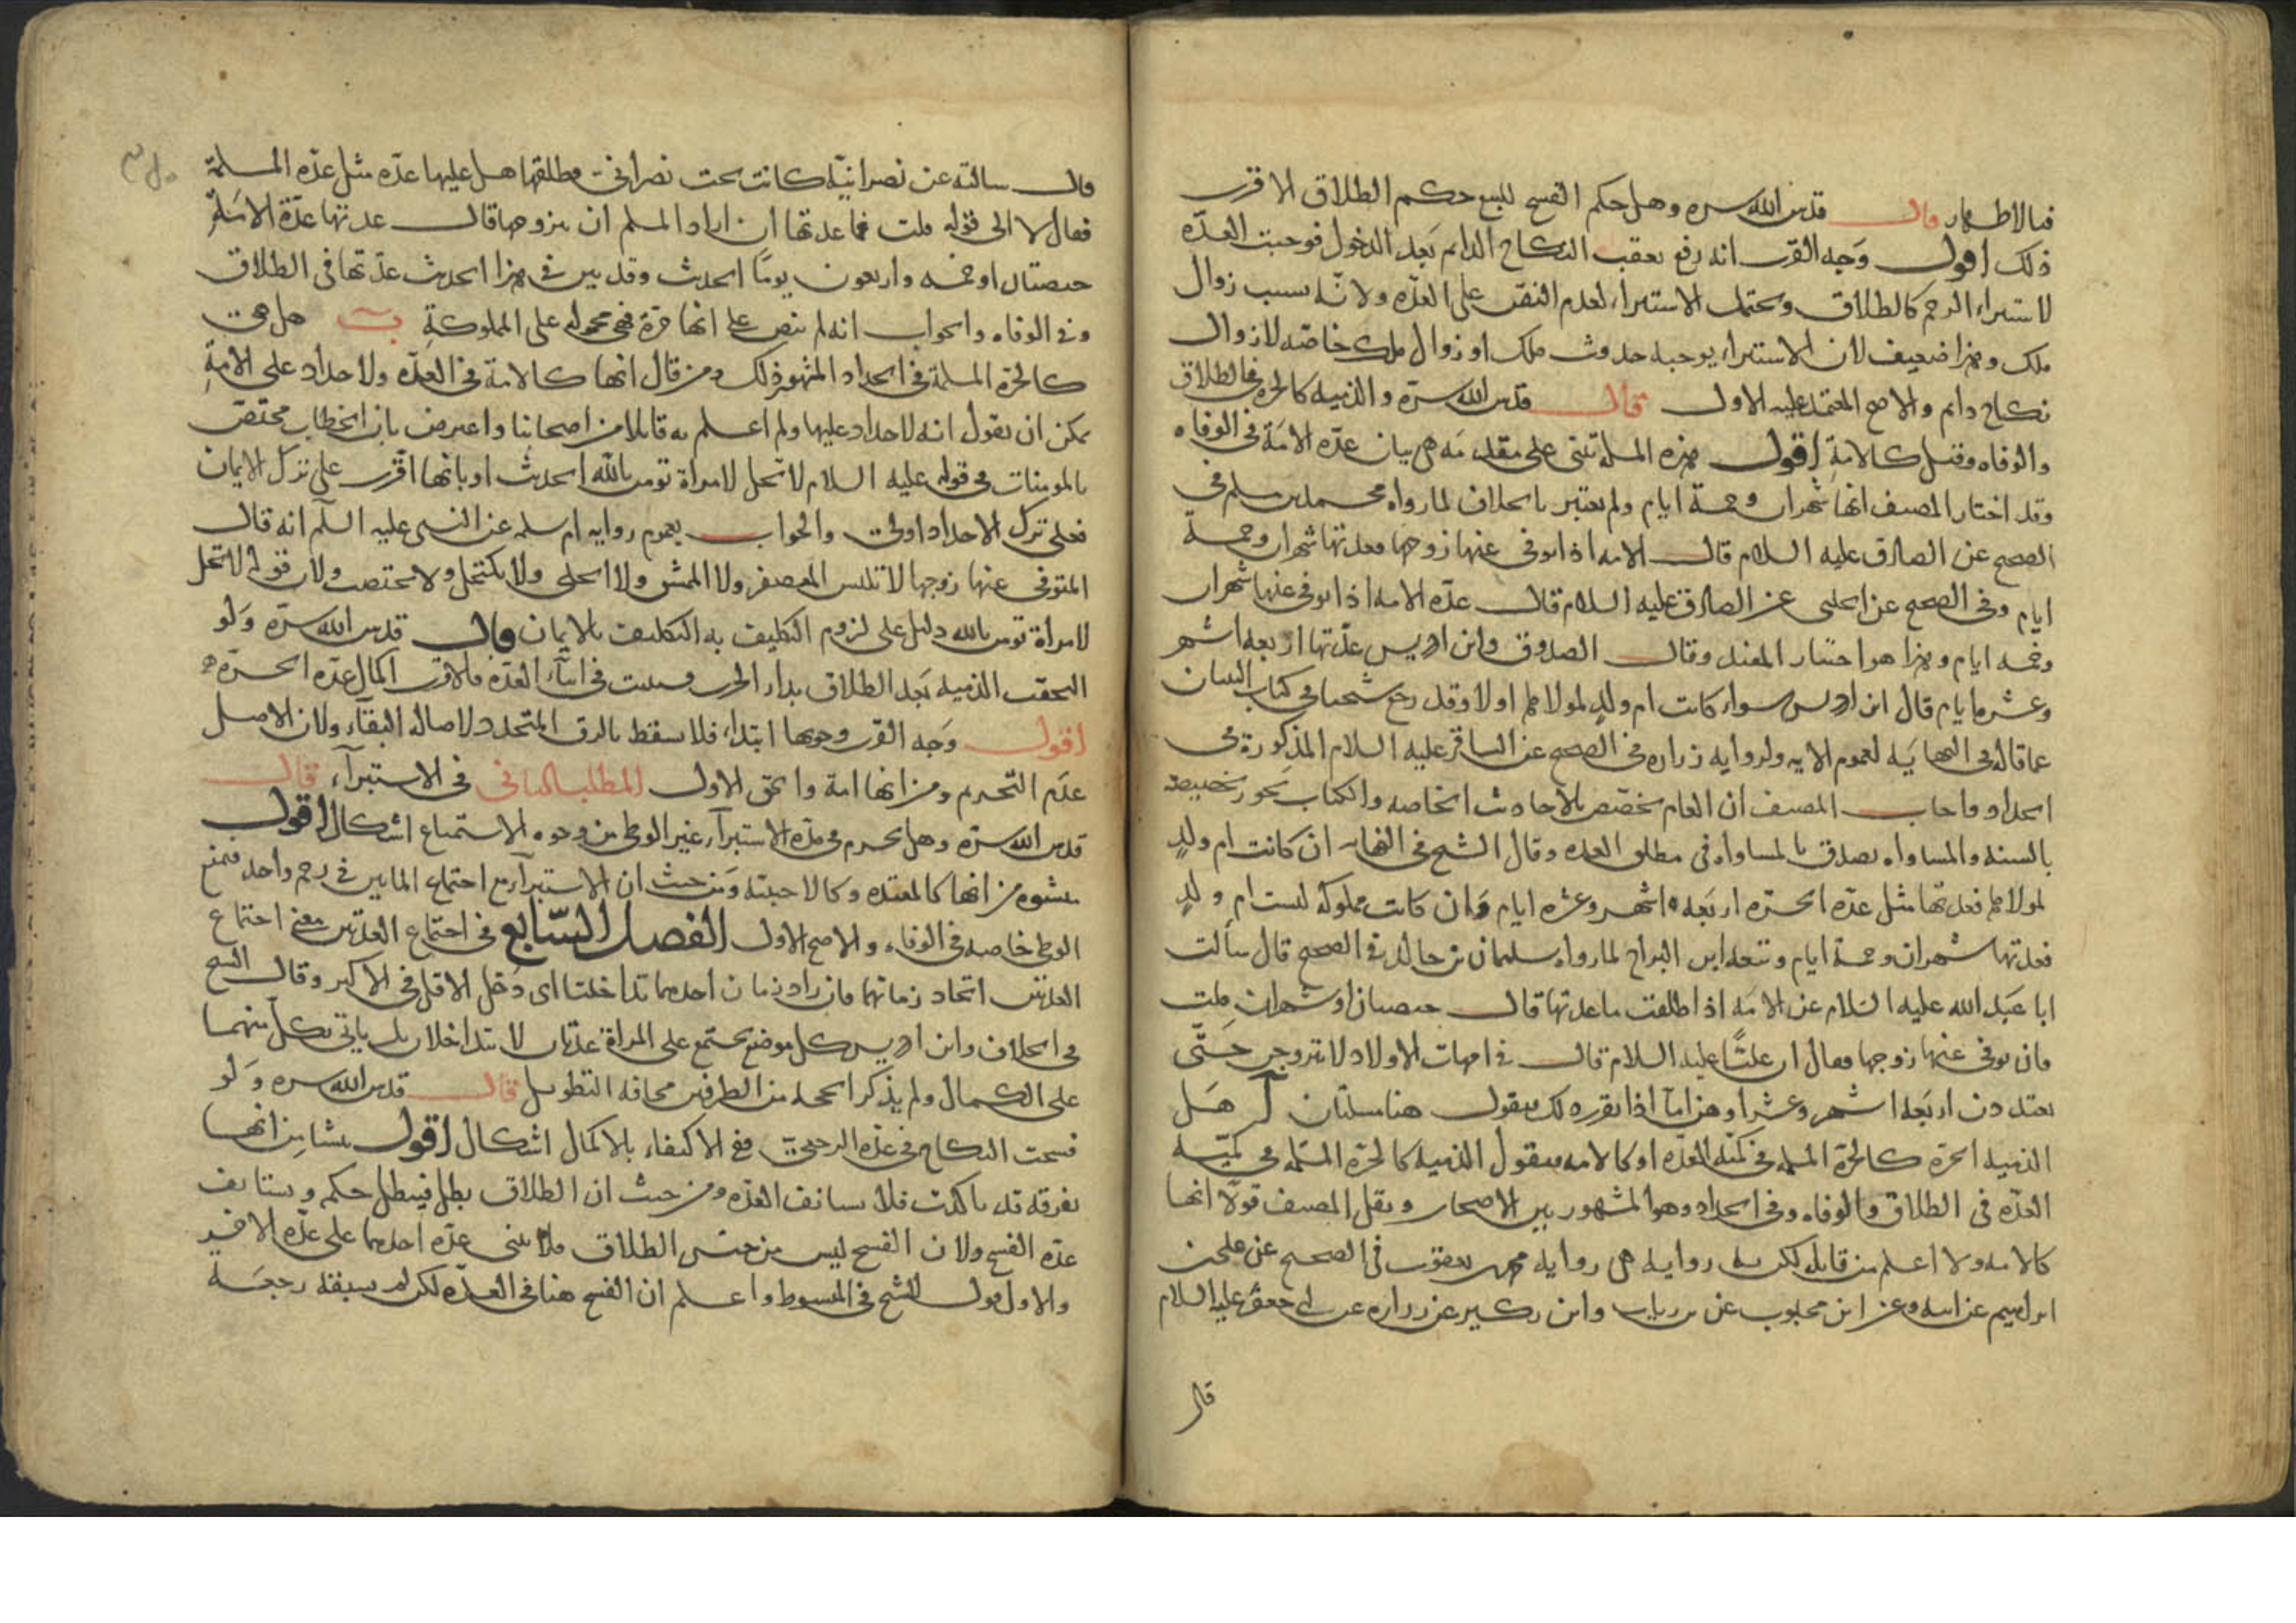 فبالاطهار قال قدس الله سره وهل حكم الفسخ للبيع حكم الطلاق الاقرب
ذلك اقول وجه القرب انه رفع يعقب النكاح الدايم بعد الدخول فوجبت العدّه
لاستبراء الرحم كالطلاق ويحتمل الاستبراء لعدم النص على العدّه ولانّه بسبب زوال
ملك وهذا ضعيف لان الاستبراء يوجبه حدوث ملك او زوال ملك خاصّه لا زوال
نكاح دايم والاصح المعتمد عليه الاول قال قدس الله سرّه والذميه كالحره فى الطلاق
والوفاه وقيل كالامةِ اقول هذه المسلة تبنى على مقدمه هى بيان عدّه الامَة فى الوفاه
وقد اختار المصنف انها شهران وخمسة ايام ولم يعتبر بالخلاف لما رواه محمد بن مسلم فى
الصحيح عن الصادق عليه السلام قال الامه اذا توفى عنها زوجها فعدتها شهران وخمسة
ايام وفى الصحيح عن الحلبى عن الصادق عليه السلام قال عدّه الامه اذا توفى عنها شهران
وخمسه ايام وهذا هو اختيار المفيد وقال الصدوق وابن ادريس عدّتها اربعه اشهر
وعشره ايام قال ابن ادريس سواء كانت ام ولدٍ لمولاها او لا وقد رجع شيخنا فى كتاب التبيان
عما قاله فى النهايَه لعموم الايه ولروايه زراره فى الصحيح عن الباقر عليه السلام المذكورة فى
الحداد واجاب المصنف ان العام يخصّص بالاحاديث الخاصه والكتاب يجوز تخصيصه
بالسنه والمساواه تصدق بالمساواه فى مطلق العده وقال الشيخ فى النهايه ان كانت ام ولدٍ
لمولاها فعدتها مثل عدّه الحرّه اربَعه اشهر وعشره ايام وَان كانت مملوكه ليست ام ولدٍ
فعدتها شهران وخمسة ايام وتبعه ابن البراج لما رواه سليمان بن خالد فى الصحيح قال سألت
ابا عَبد الله عليه السلام عن الامَه اذا طلقت ما عدتها قال حيضتان او شهران قلت
فان توفى عنها زوجها فقال ان عليًّا عليه السلام قال فى امهات الاولاد لا يتزوجن حَتّى
يعتددن اربَعه اشهر وعشرا وهن اماٌ اذا تقرر ذلك فنقول هنا مسلتان آ هَل
الذميه الحرّة كالحرّة المسلمه فى كميّه العدّه او كالامه فنقول الذميه كالحرّة المسلمه فى كميّه
العدّه فى الطلاق والوفاه وفى الحداد وهو المشهور بين الاصحاب ونقل المصنف قولًا انها
كالامه ولا اعلم من قايله لكن به روايه هى روايه محمد بن يعقوب فى الصحيح عن على بن
ابراهيم عن ابيه وعن ابن محبوب عن بن رياب وابن بكير عن زراره عن ابى جعفر عليه السلام
قال
قال سالته عن نصرانيّه كانت تحت نصرانى فطلقها هل عليها عدّه مثل عدّه المسلمة
فقال لا الى قوله قلت فما عدتها ان اراد المسلم ان يتزوجها قال عدتها عدّة الامَةِ
حيضتان او خمسه واربعون يومًا الحديث وقد بين فى هذا الحديث عدّتها فى الطلاق
وفى الوفاه والجواب انه لم ينص على انها حرّة فهى محموله على المملوكةِ ب هل هى
كالحرّة المسلمة فى الحداد المشهور ذلك ومن قال انها كالامة فى العدّه ولا حداد على الامةِ
يمكن ان يقول انه لا حداد عليها ولم اعلم به قايلا من اصحابنا واعترض بان الخطاب مختصّ
بالمومنات فى قوله عليه السلام لا تحل لامراة تومن بالله الحديث او بانها اقرّت على ترك الايمان
فعلى ترك الاحداد اولى والجواب بعموم روايه ام سلمه عن النبى عليه السلم انه قال
المتوفى عنها زوجها لا تلبس المعصفر ولا الممشق ولا الحلى ولا يكتحل ولا تختضب ولان قوله لا تحل
لامرأة تومن بالله دليل على لزوم التكليف به التكليف بالايمان قال قدس الله سرّه وَلو
التحقت الذميه بَعد الطلاق بدار الحرب وسبيت فى اثنآء العدّه فالاقرب اكمال عدّه الحرّه
اقول وَجه القرب وجوبها ابتداء فلا يسقط بالرق المتجدد ولاصاله البقآء ولان الاصل
عدم التحريم ومن انها امة والحق الاول المطلب الثانى فى الاستبرآء قال
قدس الله سرّه وهل يحرم فى مدّه الاستبرآء غير الوطى من وجوه الاستمتاع اشكال اقول
ينشوء من انها كالمعتده وكالاجنبيّه وَمن حيث ان الاستبرآء مع احتماع المايين فى رحم واحد فيمنع
الوطى خاصه فى الوفاء والاصح الاول الفصل السّابع فى اجتماع العدتين معنى اجتماع
العدتين اتحاد زمانهما فان زاد زمان احدهما تداخلتا اى دَخل الاقل فى الاكبر وقال الشيخ
فى الخلاف وابن ادريس كل موضع يجتمع على المراة عدتان لا يتداخلان بل ياتى بكل منهما
على الكمال ولم يذكرا الحجه من الطرفين مخافه التطويل قال قدس الله سره وَلو
فسخت النكاح فى عدّه الرجعىّ ففى الاكتفاء بالاكمال اشكال اقول ينشا من انها
بفرقه قد تاكدت فلا تستانف العدّه ومن حيث ان الطلاق بطل فيبطل حكمه ويستانف
عدّه الفسخ ولان الفسخ ليس من جنس الطلاق فلا يبنى عدّه احدهما على عدّه الاخر
والاول قول للشيخ فى المبسوط واعلم ان الفسخ هنا فى العدّه لكن لم يسبقه رجعَه